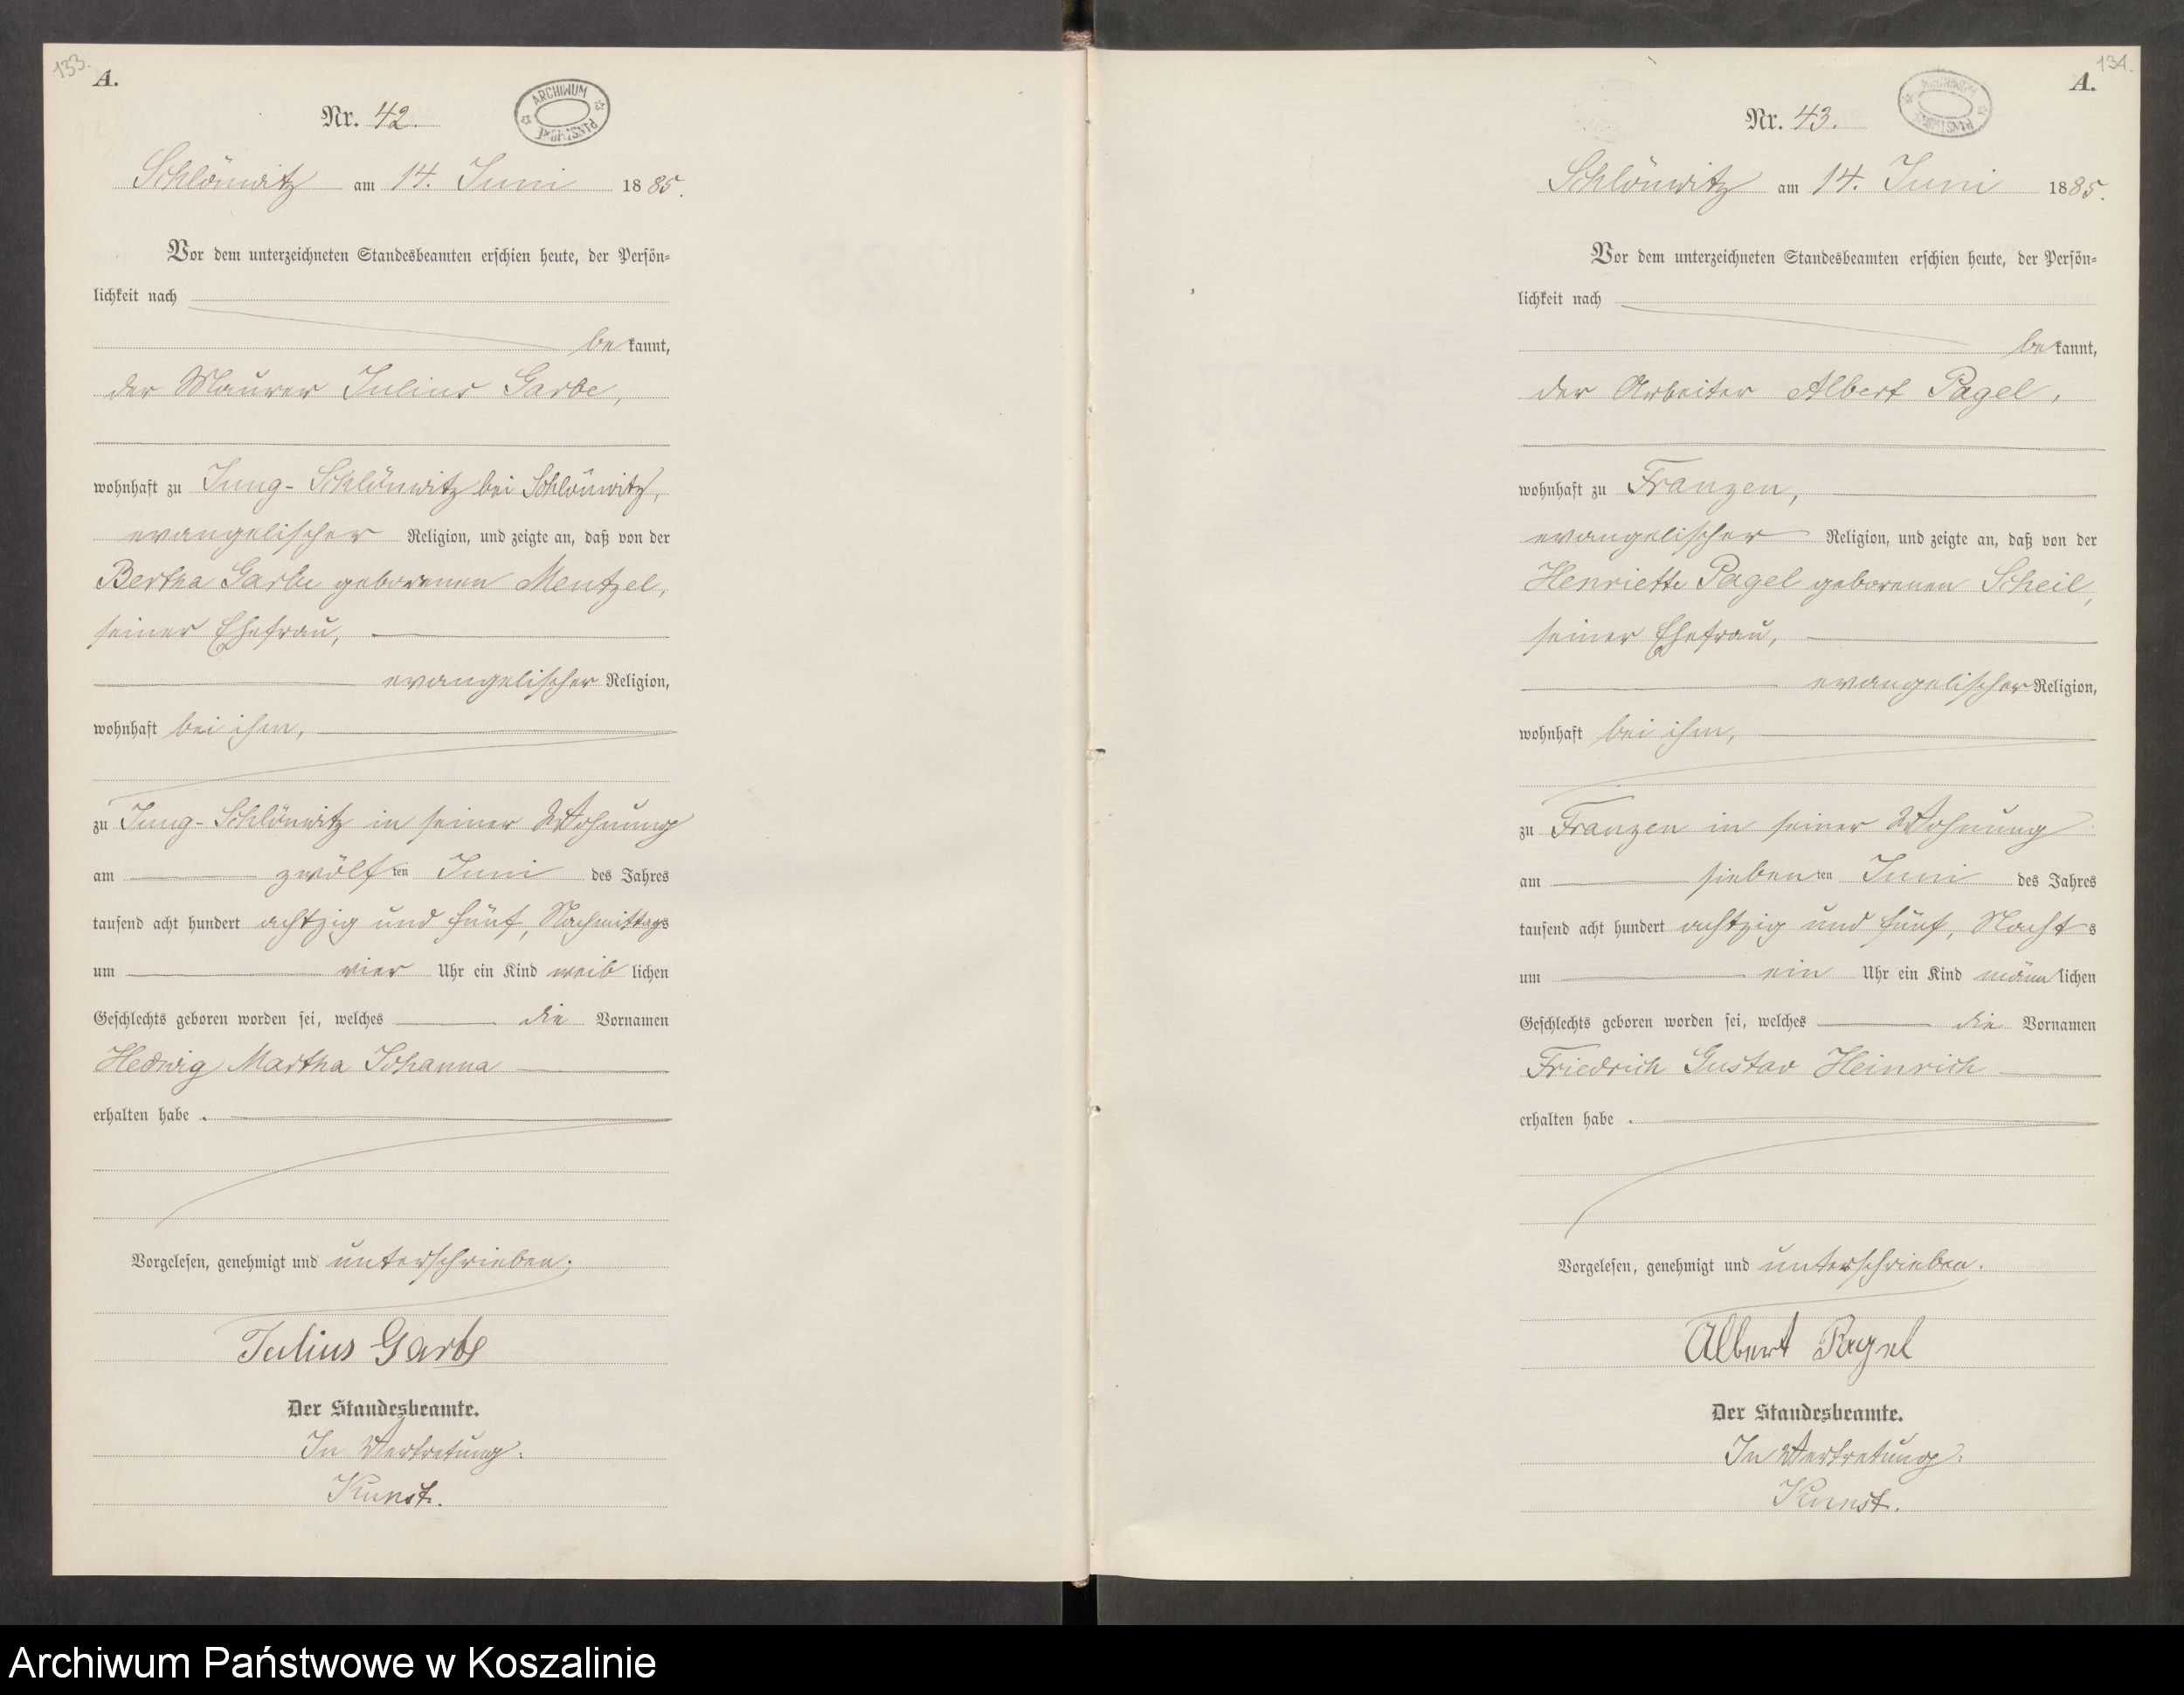 133.
A.
ARCHIWUM PAŃSTWOWE
Nr. 42.
Schlönwitz am 14. Juni 1885.
Vor dem unterzeichneten Standesbeamten erschien heute, der Persön-
lichkeit nach
bekannt,
der Maurer Julius Garbe,
wohnhaft zu Jung-Schlönwitz bei Schlönwitz,
evangelischer Religion, und zeigte an, daß von der
Bertha Garbe geborenen Mentzel,
seiner Ehefrau,
evangelischer Religion,
wohnhaft bei ihm,
zu Jung-Schlönwitz in seiner Wohnung
am zwölften Juni des Jahres
tausend acht hundert achtzig und fünf, Nachmittags
um vier Uhr ein Kind weiblichen
Geschlechts geboren worden sei, welches die Vornamen
Hedwig Martha Johanna
erhalten habe.
Vorgelesen, genehmigt und unterschrieben.
Julius Garbe
Der Standesbeamte.
In Vertretung:
Kunst.
134.
A.
ARCHIWUM PAŃSTWOWE
Nr. 43.
Schlönwitz am 14. Juni 1885.
Vor dem unterzeichneten Standesbeamten erschien heute, der Persön-
lichkeit nach
bekannt,
der Arbeiter Albert Pagel,
wohnhaft zu Franzen,
evangelischer Religion, und zeigte an, daß von der
Henriette Pagel geborenen Scheil,
seiner Ehefrau,
evangelischer Religion,
wohnhaft bei ihm,
zu Franzen in seiner Wohnung
am siebenten Juni des Jahres
tausend acht hundert achtzig und fünf, Nachts
um ein Uhr ein Kind männlichen
Geschlechts geboren worden sei, welches die Vornamen
Friedrich Gustav Heinrich
erhalten habe.
Vorgelesen, genehmigt und unterschrieben.
Albert Pagel
Der Standesbeamte.
In Vertretung:
Kunst.
Archiwum Państwowe w Koszalinie